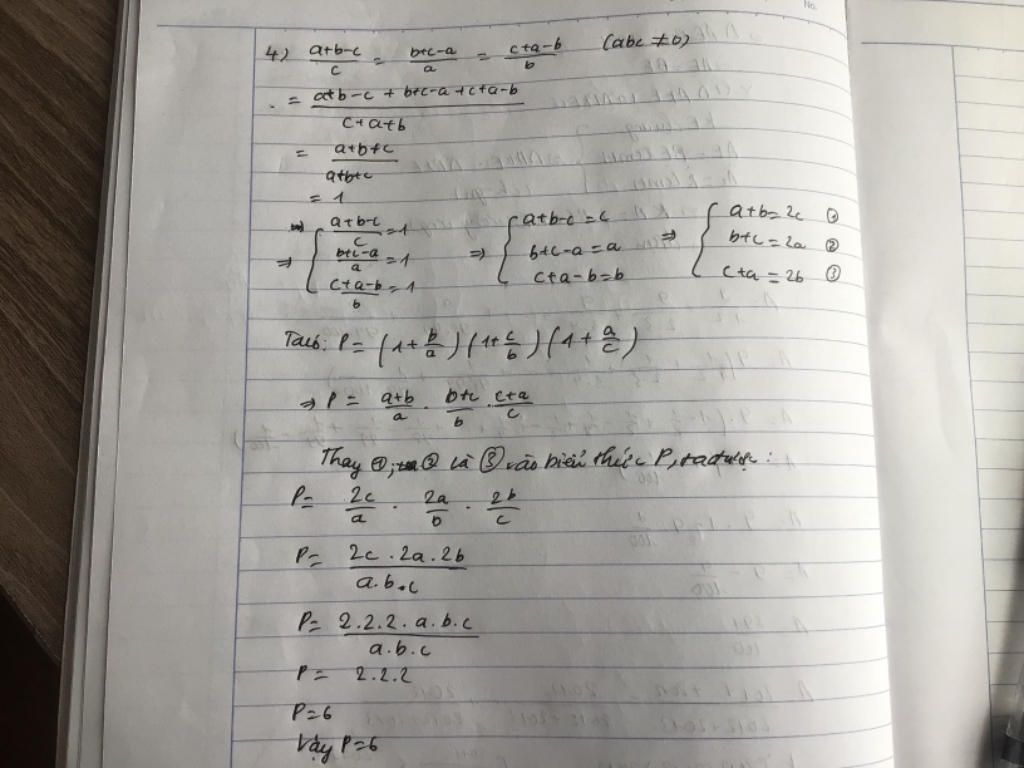 No.
4) (a+b-c)/c = (b+c-a)/a = (c+a-b)/b (abc ≠ 0)
= (a+b-c + b+c-a + c+a-b)/(c+a+b)
= (a+b+c)/(a+b+c)
= 1
⇒ { (a+b-c)/c = 1 ⇒ { a+b-c = c ⇒ { a+b = 2c ①
(b+c-a)/a = 1 b+c-a = a b+c = 2a ②
(c+a-b)/b = 1 c+a-b = b c+a = 2b ③
P = (1+b/a)(1+c/b)(1+a/c)
⇒ P = (a+b)/a . (b+c)/b . (c+a)/c
Thay ①; ② và ③ vào biểu thức P, ta được:
P = 2c/a . 2a/b . 2b/c
P = (2c . 2a . 2b)/(a.b.c)
P = (2.2.2.a.b.c)/(a.b.c)
P = 2.2.2
P = 6
Vậy P = 6